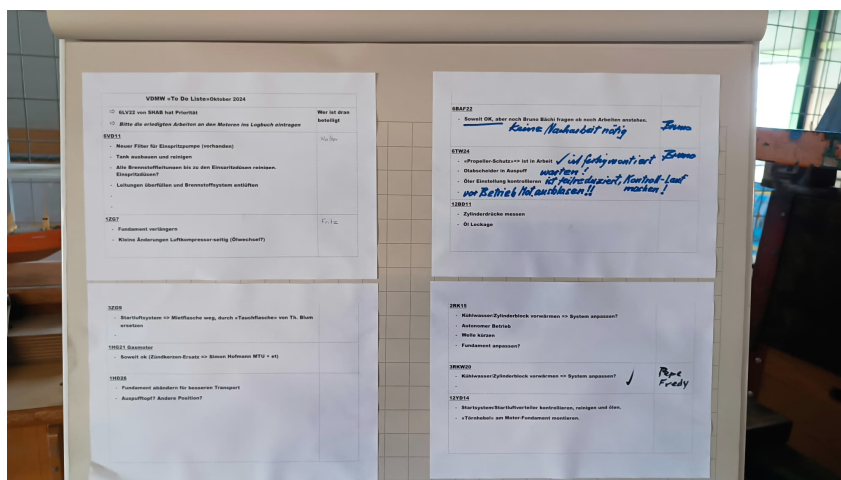 VDMW «To Do Liste»Oktober 2024
⇨ 6LV22 von SHAB hat Priorität
⇨ Bitte die erledigten Arbeiten an den Motoren ins Logbuch eintragen
Wer ist dran
beteiligt
6VD11
- Neuer Filter für Einspritzpumpe (vorhanden)
- Tank ausbauen und reinigen
- Alle Brennstoffleitungen bis zu den Einspritzdüsen reinigen.
Einspritzdüsen?
- Leitungen überfüllen und Brennstoffsystem entlüften
-
-
1ZG7
Fritz
- Fundament verlängern
- Kleine Änderungen Luftkompressor-seitig (Ölwechsel?)
3ZG9
- Startluftsystem => Mietflasche weg, durch «Tauchflasche» von Th. Blum
ersetzen
-
1HG21 Gasmotor
- Soweit ok (Zündkerzen-Ersatz => Simon Hofmann MTU + et)
1HD26
- Fundament abändern für besseren Transport
- Auspufftopf? Andere Position?
6BAF22
- Soweit OK, aber noch Bruno Bächi fragen ob noch Arbeiten anstehen.
Keine Nacharbeit nötig Bruno
6TW24
- «Propeller-Schutz»=> ist in Arbeit ✓ ist fertig montiert Bruno
- Ölabscheider in Auspuff warten!
- Öler Einstellung kontrollieren ist teilreduziert, Kontroll-Lauf
- vor Betrieb Höl ausblasen!! machen!
12BD11
- Zylinderdrücke messen
- Öl Leckage
2RK15
- Kühlwasser/Zylinderblock vorwärmen => System anpassen?
- Autonomer Betrieb
- Welle kürzen
- Fundament anpassen?
3RKW20
- Kühlwasser/Zylinderblock vorwärmen => System anpassen? ✓
-
Pepe
Fredy
12YD14
- Startsystem/Startluftverteiler kontrollieren, reinigen und ölen.
- «Törnhebel» am Motor-Fundament montieren.